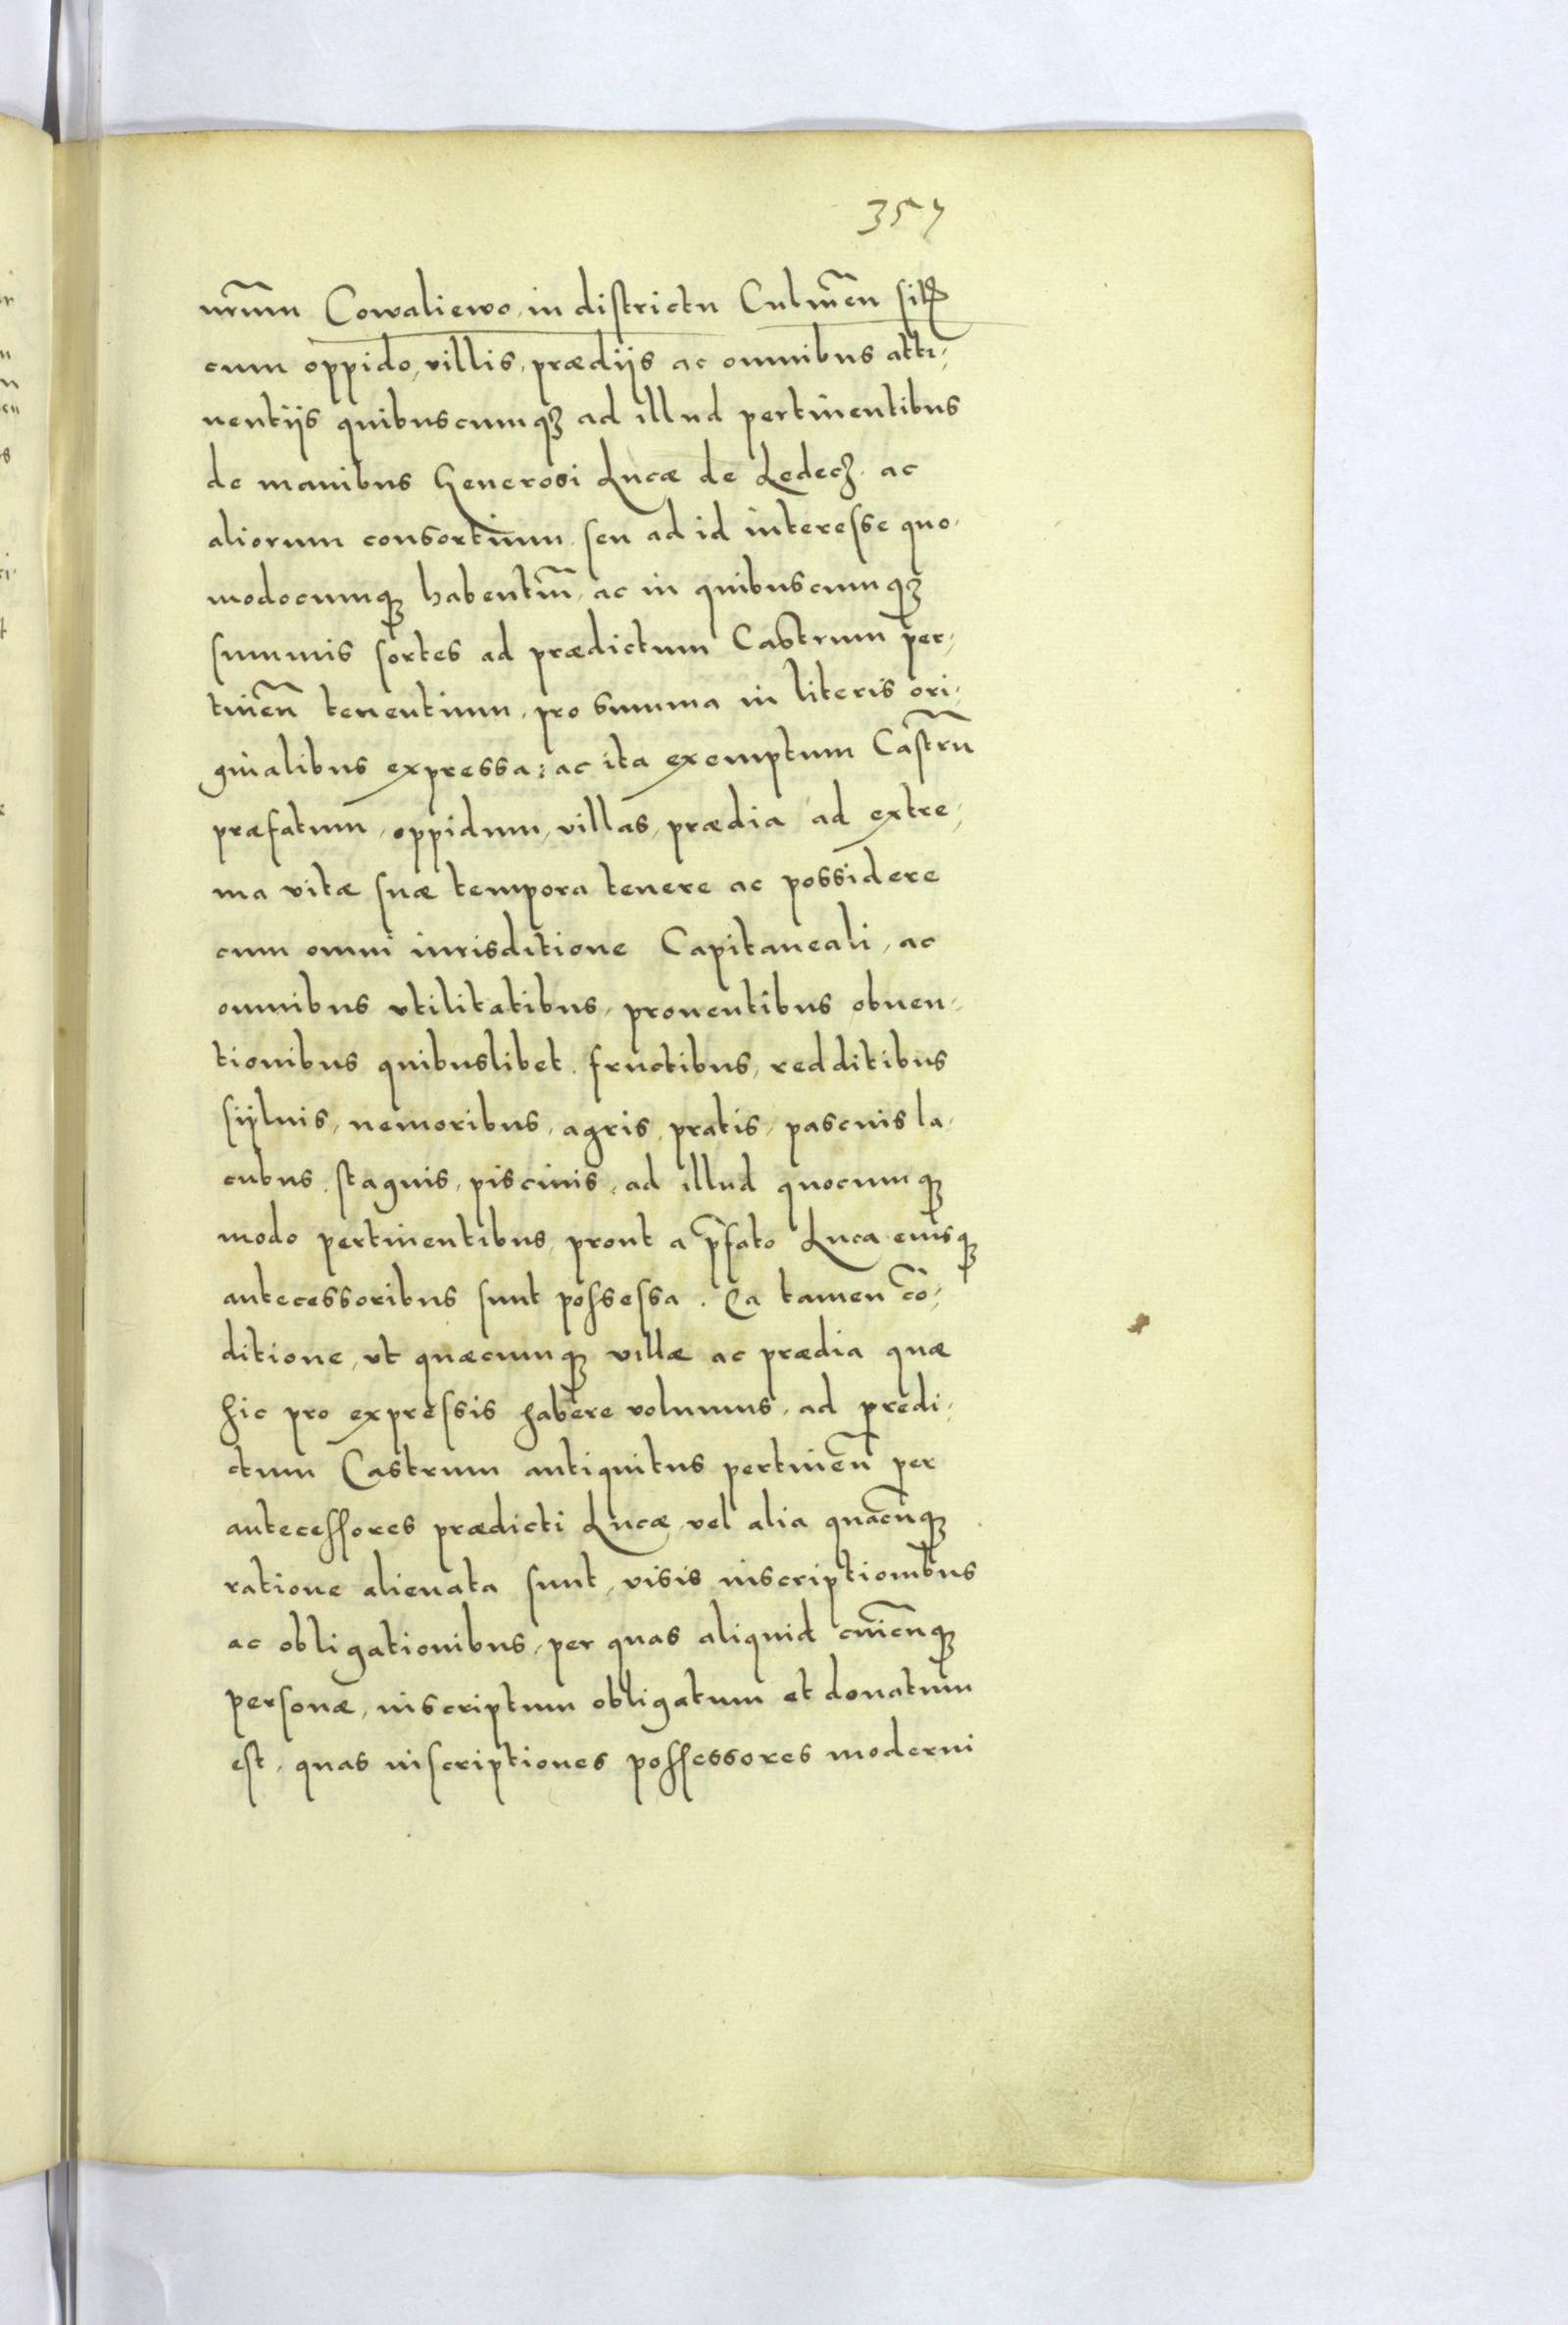 357
nrm̃ Cowaliewo, in districtu Culmeñ sitꝭ
cum oppido, villis, prædijs ac omnibus atti-
nentijs quibuscumqꝫ ad illud pertinentibus
de manibus Generosi Lucæ de Ledecz. ac
aliorum consortium. seu ad id interesse quo-
modocumqꝫ habentiũ, ac in quibuscumqꝫ
summis sortes ad prædictum Castrum per-
tineñ tenentium, pro summa in literis ori-
ginalibus expressa: ac ita exemptum Castrũ
præfatum, oppidum, villas, prædia ad extre-
ma vitæ suæ tempora tenere ac possidere
cum omni iurisditione Capitaneali, ac
omnibus vtilitatibus, prouentibus obuen-
tionibus quibuslibet. fructibus, redditibus
sijluis, nemoribus, agris, pratis, pascuis la-
cubus, stagnis, piscinis, ad illud quocumqꝫ
modo pertinentibus, prout a p̃fato Luca eiusqꝫ
antecessoribus sunt possessa. Ea tamen cõ-
ditione, vt quæcumqꝫ villæ ac prædia quæ
hic pro expressis habere volumus, ad predi-
ctum Castrum antiquitus pertineñ per
antecessores prædicti Lucæ, vel alia quacũqꝫ
ratione alienata sunt, visis inscriptionibus
ac obligationibus, per quas aliquid cuicũqꝫ
personæ, inscriptum obligatum et donatum
est, quas inscriptiones possessores moderni